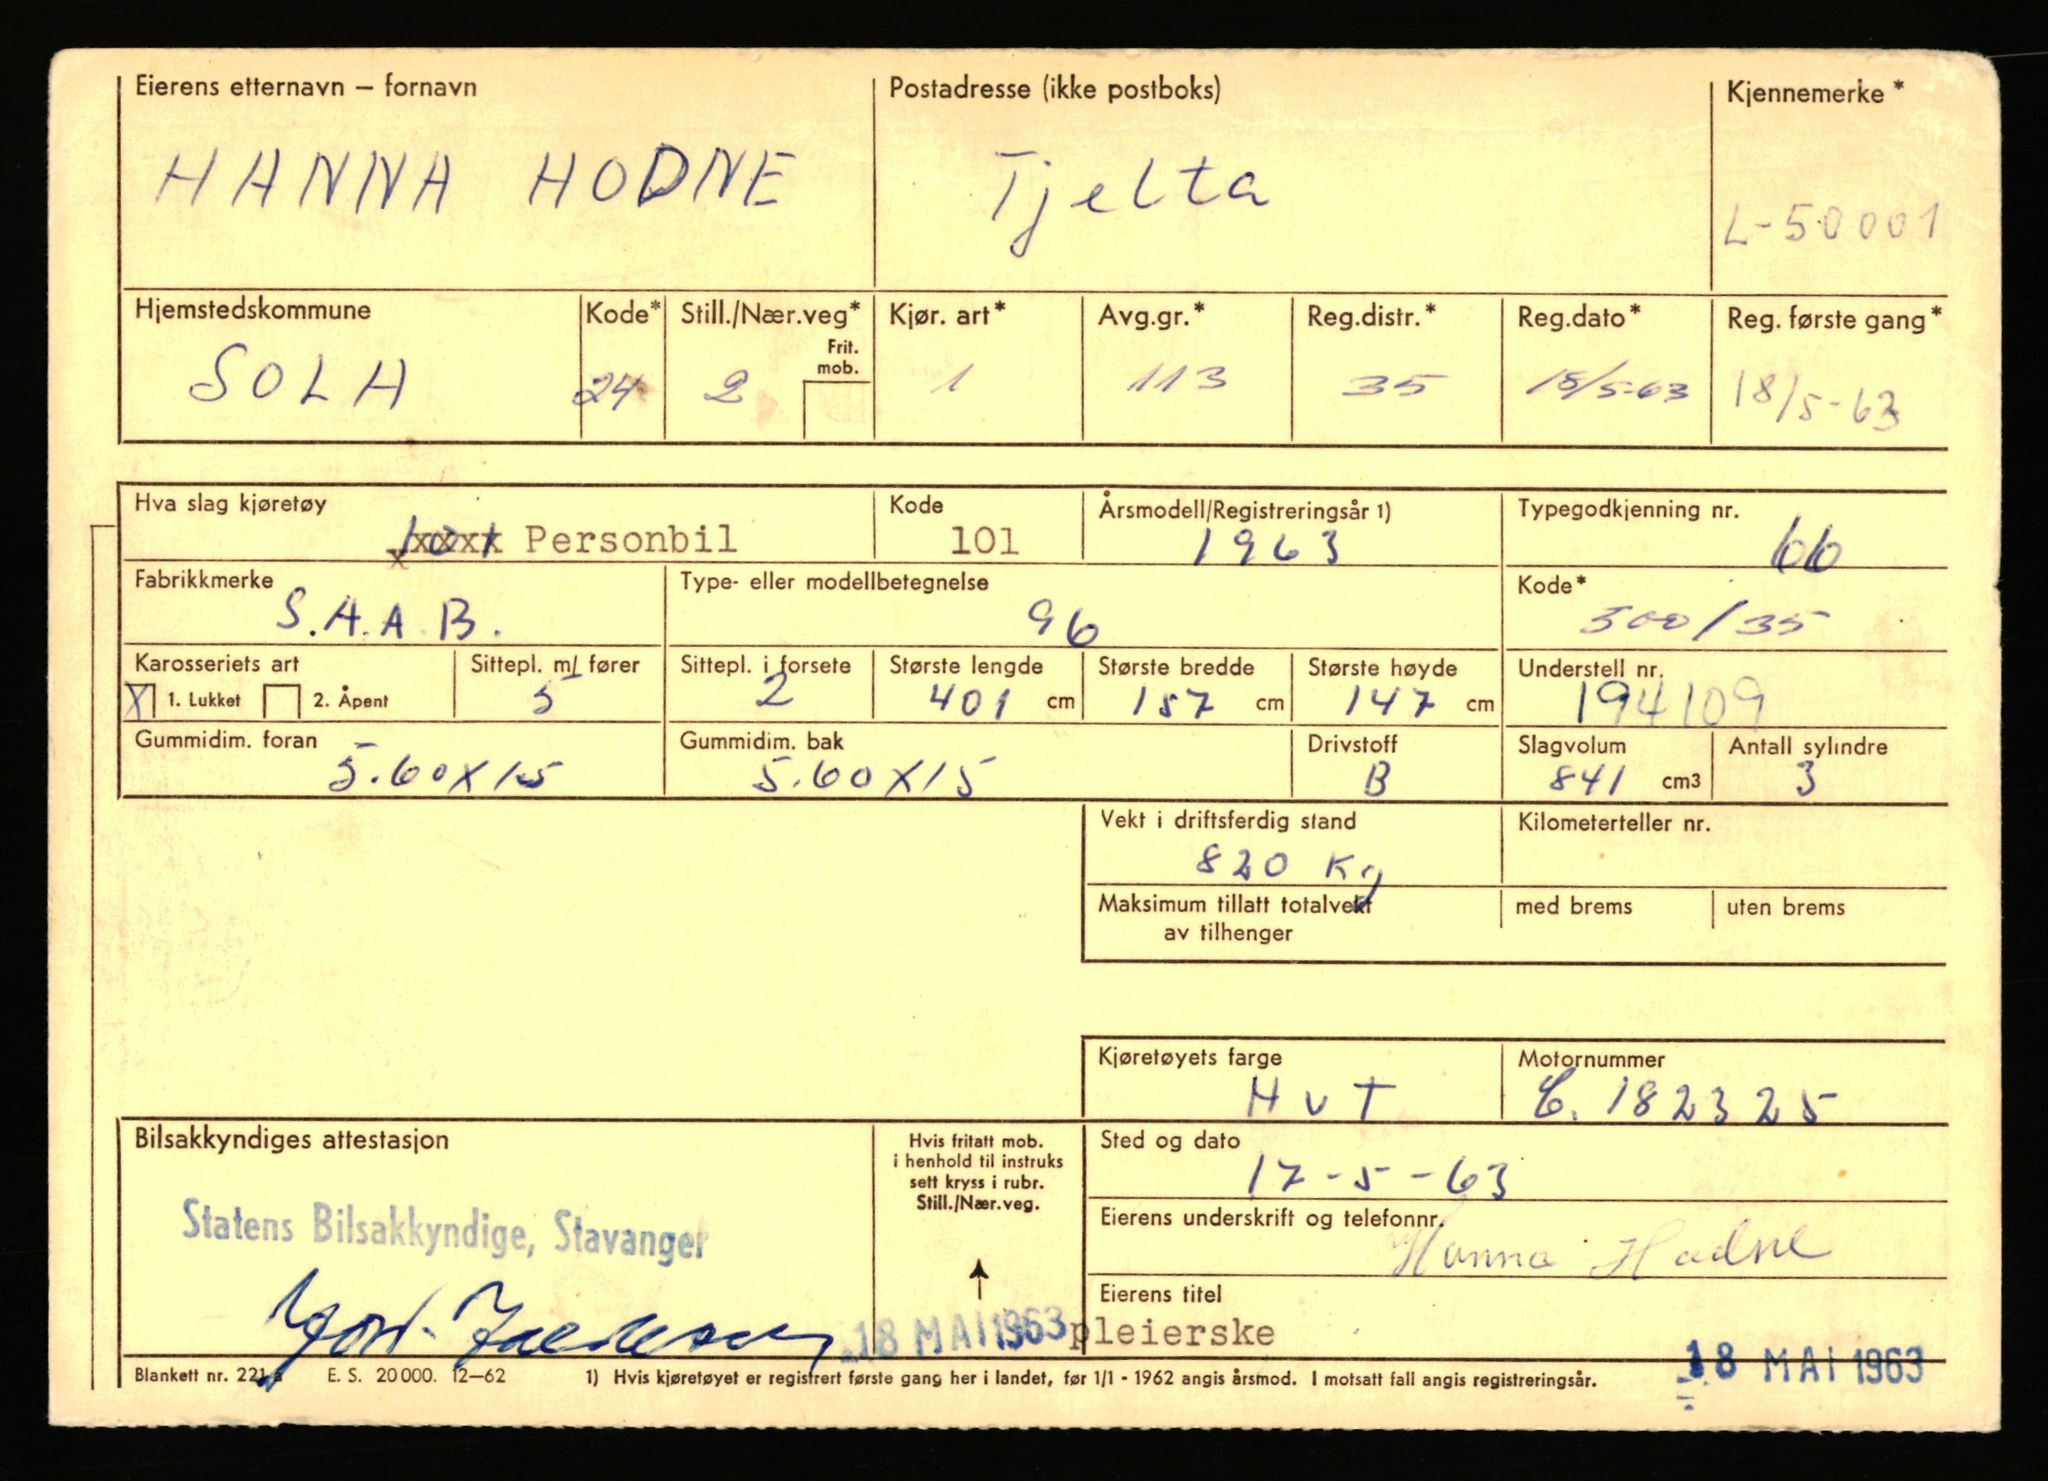 Eierens etternavn – fornavn
HANNA HODNE
Postadresse (ikke postboks)
Tjelta
Kjennemerke *
L-50001
Hjemstedskommune
SOLA
Kode*
24
Still./Nær.veg*
Frit. mob.
2
Kjør. art*
1
Avg.gr.*
113
Reg.distr.*
35
Reg.dato*
18/5-63
Reg. første gang*
18/5-63
Hva slag kjøretøy
Personbil
Kode
101
Årsmodell/Registreringsår 1)
1963
Typegodkjenning nr.
66
Fabrikkmerke
S.A.A.B.
Type- eller modellbetegnelse
96
Kode*
500/35
Karosseriets art
X 1. Lukket 2. Åpent
Sittepl. m/ fører
5
Sittepl. i forsete
2
Største lengde
401 cm
Største bredde
157 cm
Største høyde
147 cm
Understell nr.
194109
Gummidim. foran
5.60X15
Gummidim. bak
5.60X15
Drivstoff
B
Slagvolum
841 cm3
Antall sylindre
3
Vekt i driftsferdig stand
820 Kg
Kilometerteller nr.
Maksimum tillatt totalvekt
av tilhenger
med brems
uten brems
Kjøretøyets farge
HvT
Motornummer
C. 182325
Bilsakkyndiges attestasjon
Statens Bilsakkyndige, Stavanger
Hvis fritatt mob.
i henhold til instruks
sett kryss i rubr.
Still./Nær.veg.
18 MAI 1963
Sted og dato
17-5-63
Eierens underskrift og telefonnr.
Hanna Hodne
Eierens titel
pleierske
18 MAI 1963
Blankett nr. 221 a E. S. 20 000. 12–62 1) Hvis kjøretøyet er registrert første gang her i landet, før 1/1 - 1962 angis årsmod. I motsatt fall angis registreringsår.